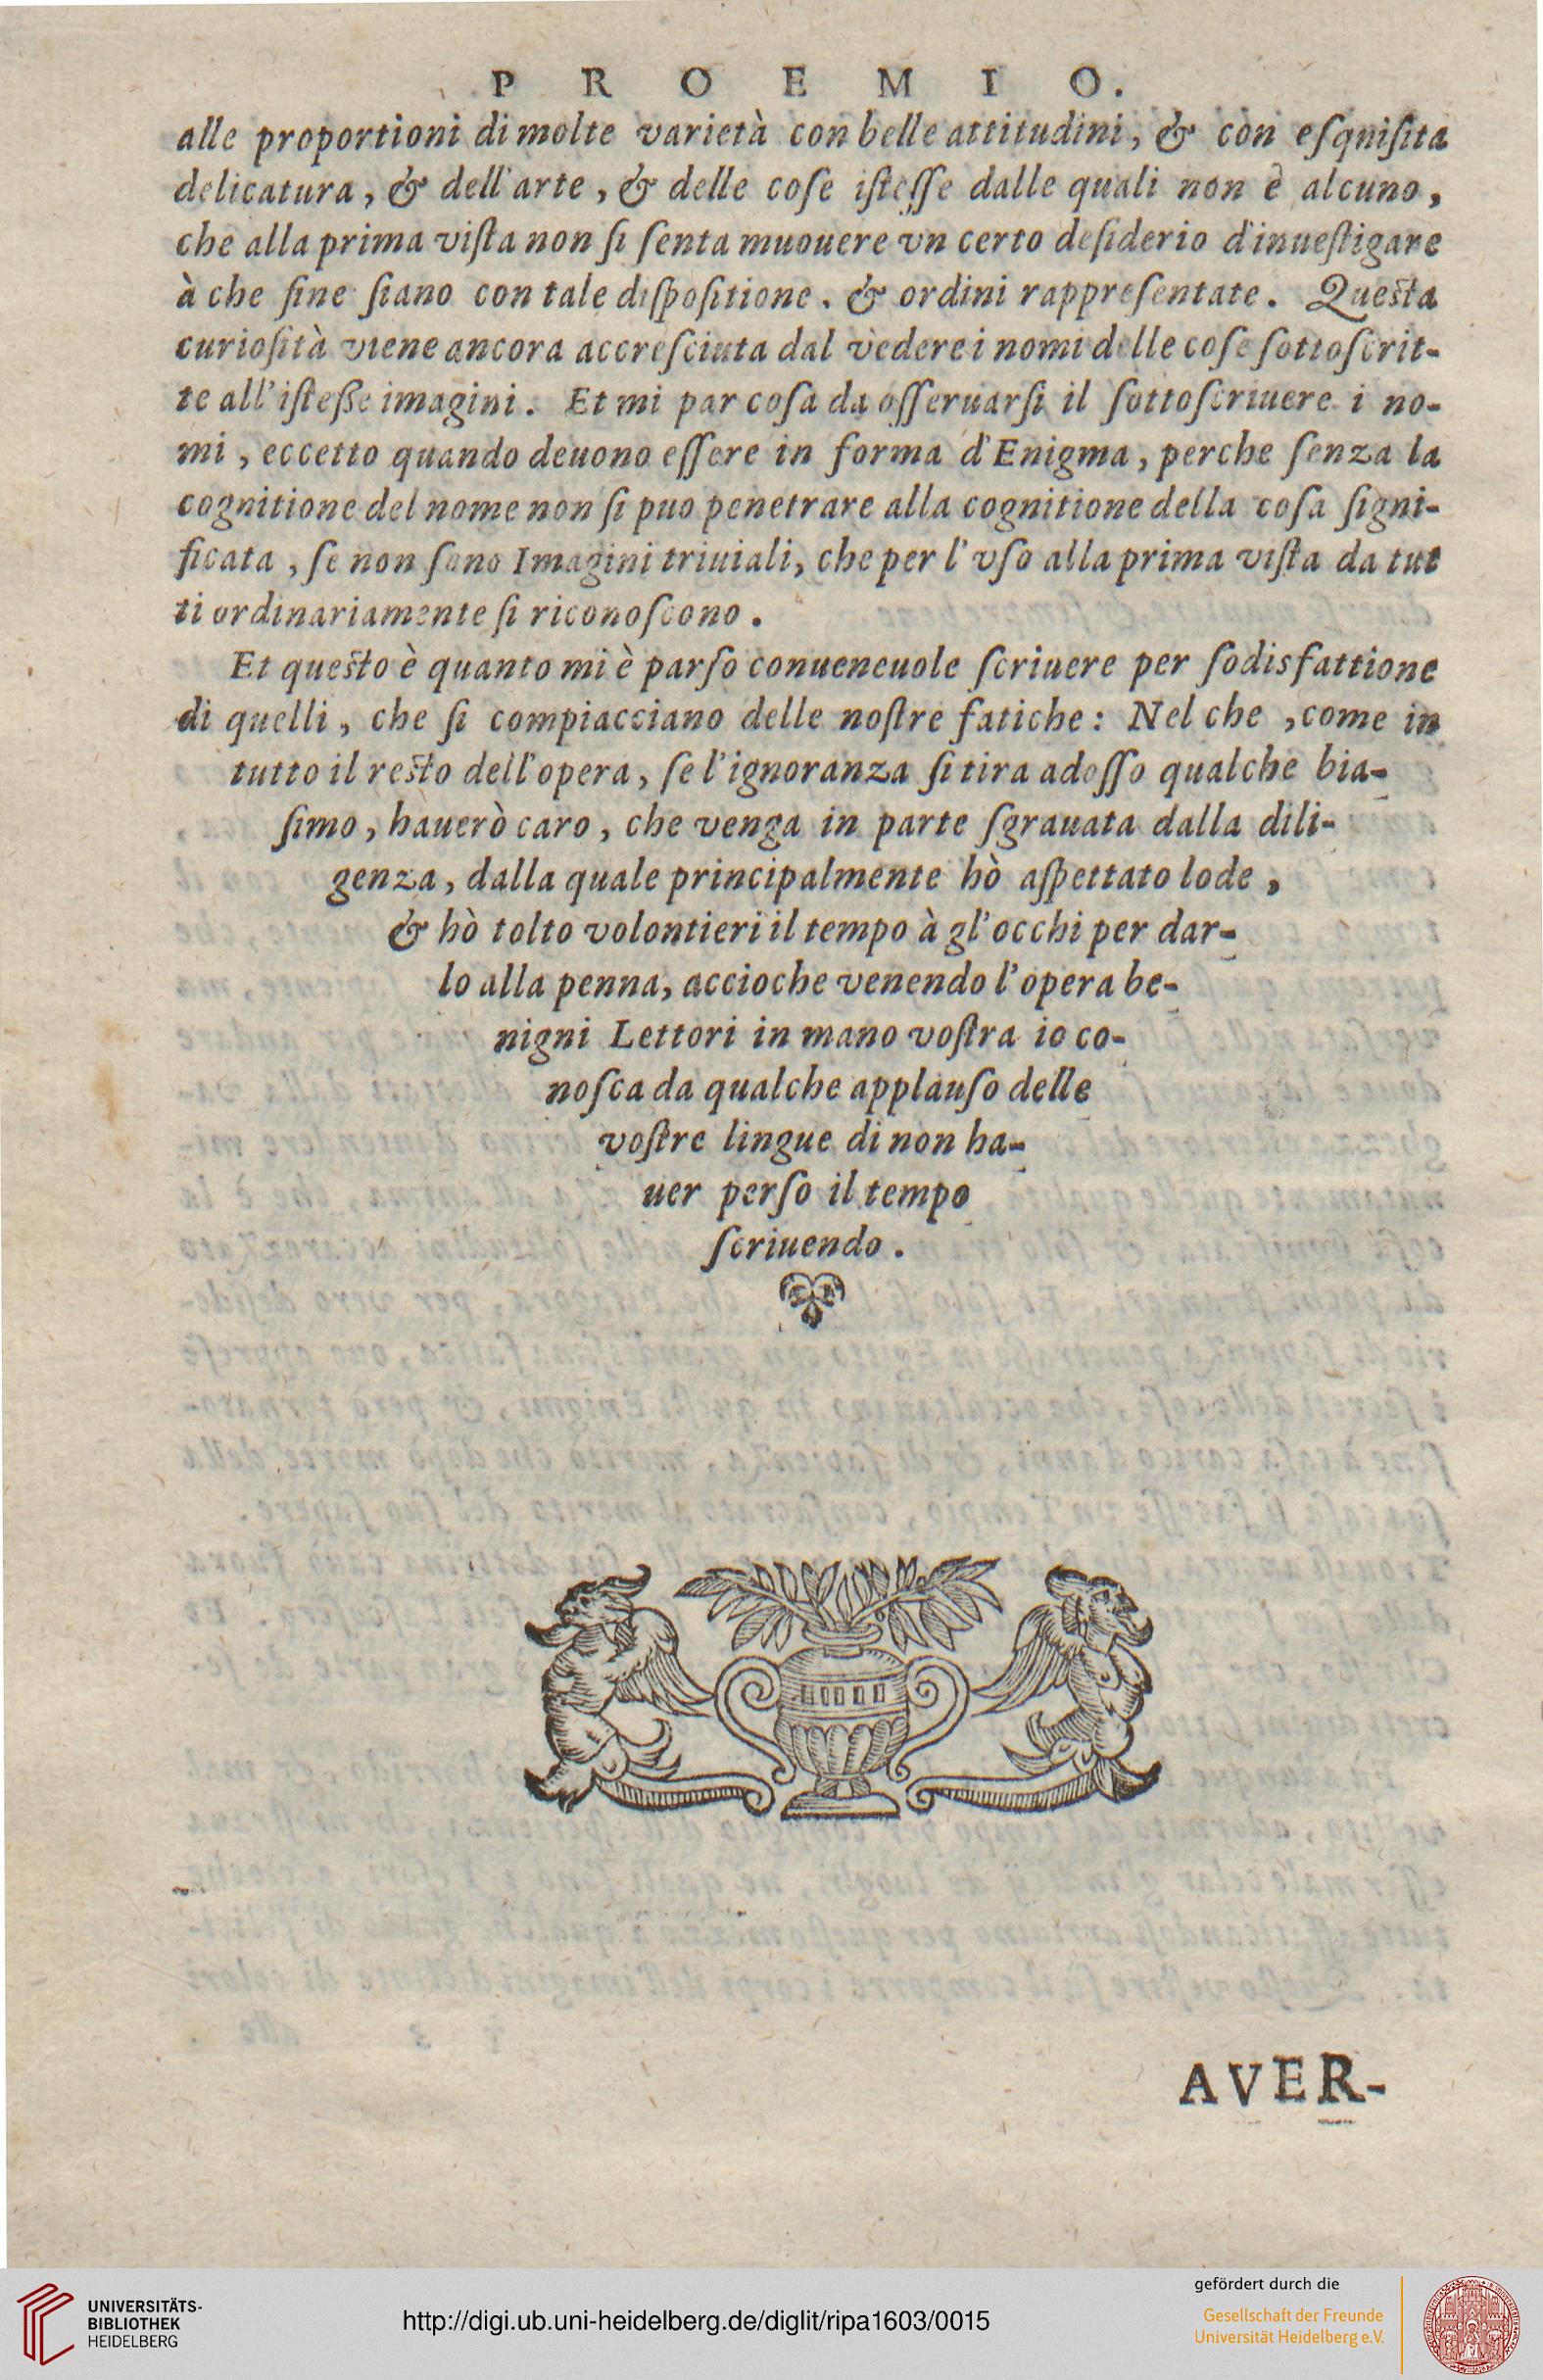 P R O E M I O.
alle proportioni di molte varietà con belle attitudini, & con eſquiſita
delicatura, & dell'arte, & delle coſe iſteſſe dalle quali non è alcuno,
che alla prima viſta non ſi ſenta muouere vn certo deſiderio d'inueſtigare
à che fine ſiano con tale diſpoſitione, & ordini rappreſentate. Queſta
curioſità viene ancora accreſciuta dal vedere i nomi delle coſe ſottoſcrit-
te all'iſteſſe imagini. Et mi par coſa da oſſeruarſi il ſottoſcriuere i no-
mi, eccetto quando deuono eſſere in forma d'Enigma, perche ſenza la
cognitione del nome non ſi puo penetrare alla cognitione della coſa ſigni-
ficata, ſe non ſono Imagini triuiali, che per l'vſo alla prima viſta da tut
ti ordinariamente ſi riconoſcono.
Et queſto è quanto mi è parſo conueneuole ſcriuere per ſodisfattione
di quelli, che ſi compiacciano delle noſtre fatiche: Nel che, come in
tutto il reſto dell'opera, ſe l'ignoranza ſi tira adoſſo qualche bia-
ſimo, hauerò caro, che venga in parte ſgrauata dalla dili-
genza, dalla quale principalmente hò aſpettato lode,
& hò tolto volontieri il tempo à gl'occhi per dar-
lo alla penna, accioche venendo l'opera be-
nigni Lettori in mano voſtra io co-
noſca da qualche applauſo delle
voſtre lingue di non ha-
uer perſo il tempo
ſcriuendo.
AVER-
UNIVERSITÄTS-
BIBLIOTHEK
HEIDELBERG
http://digi.ub.uni-heidelberg.de/diglit/ripa1603/0015
gefördert durch die
Gesellschaft der Freunde
Universität Heidelberg e.V.